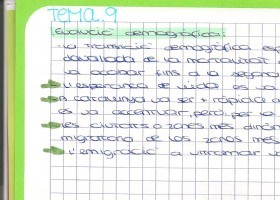 TEMA.9
Evolució demogràfica:
·La transició demogràfica esp
davallada de la mortalitat,
va acabar fins a la segona
L'esperança de vida es va
A Catalunya va ser + ràpida e
es va accentuar, però, per la
les ciutats o zones més dinàm
migratòria de les zones més
L'emigració a ultramar va